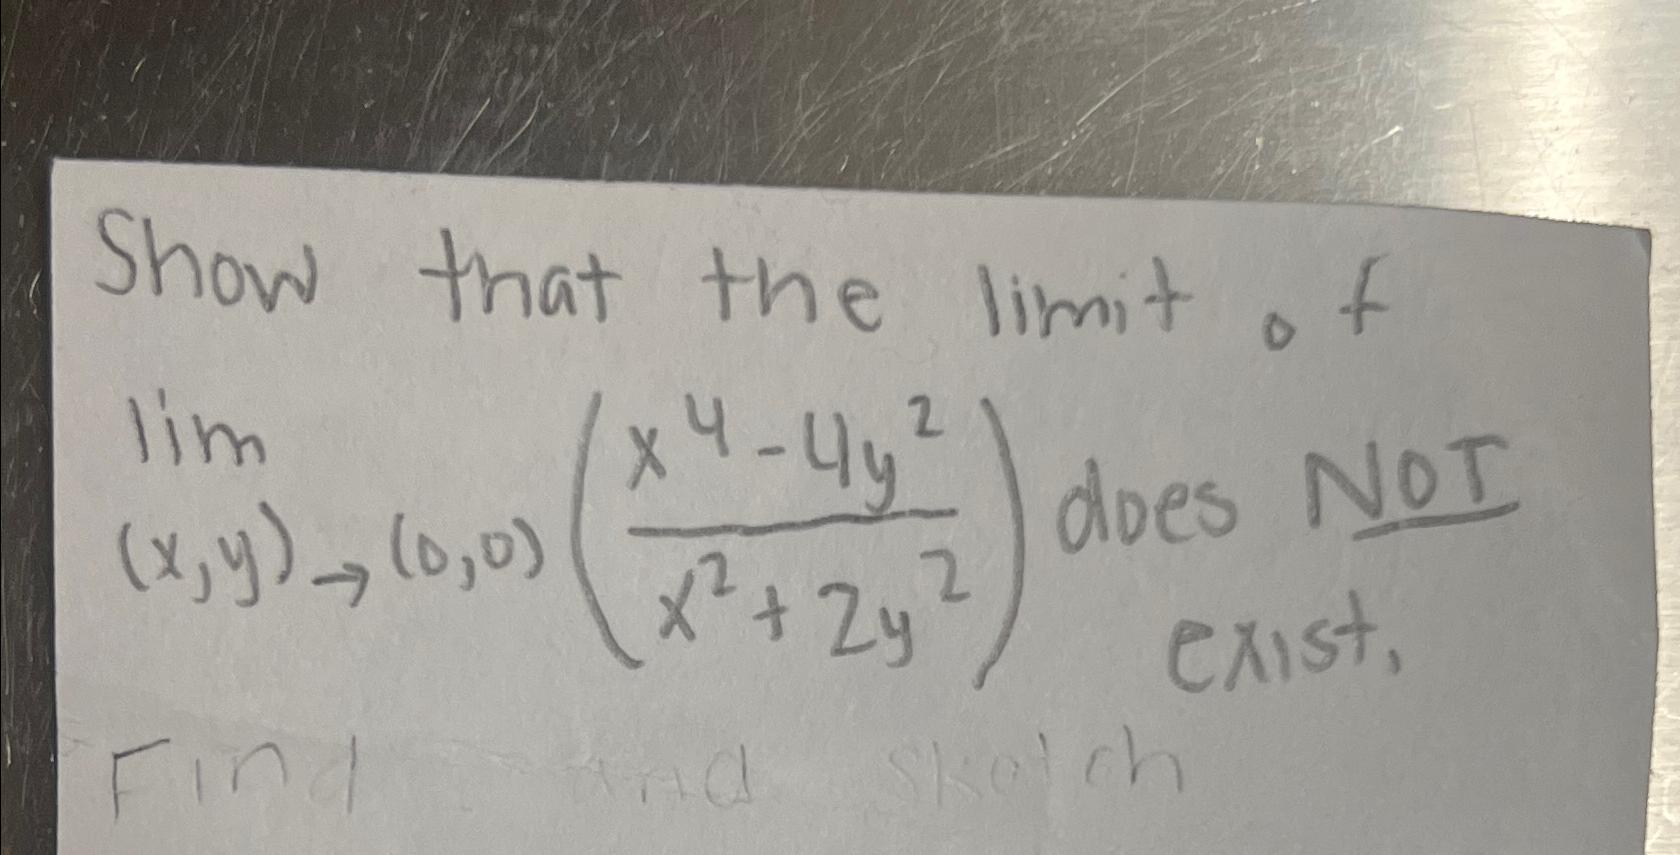 Show that the limit of
lim (x,y)→(0,0) (x⁴-4y²/x²+2y²) does NOT
exist.
Find and sketch